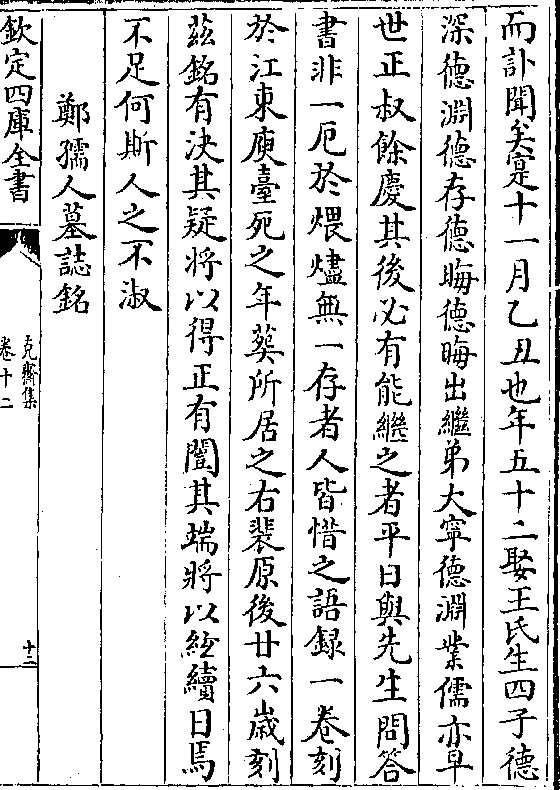 而訃聞矣寔十一月乙丑也年五十二娶王氏生四子德
深德淵德存德晦德晦出繼弟大寧德淵業儒亦早
世正叔餘慶其後必有能繼之者平日與先生問答
書非一厄於煨燼無一存者人皆惜之語録一卷刻
於江東庾臺死之年葬所居之右裴原後廿六歲刻
茲銘有決其疑將以得正有闓其端將以紘續日焉
不足何斯人之不淑
鄭孺人墓誌銘
欽定四庫全書
克齋集
卷十二
十二